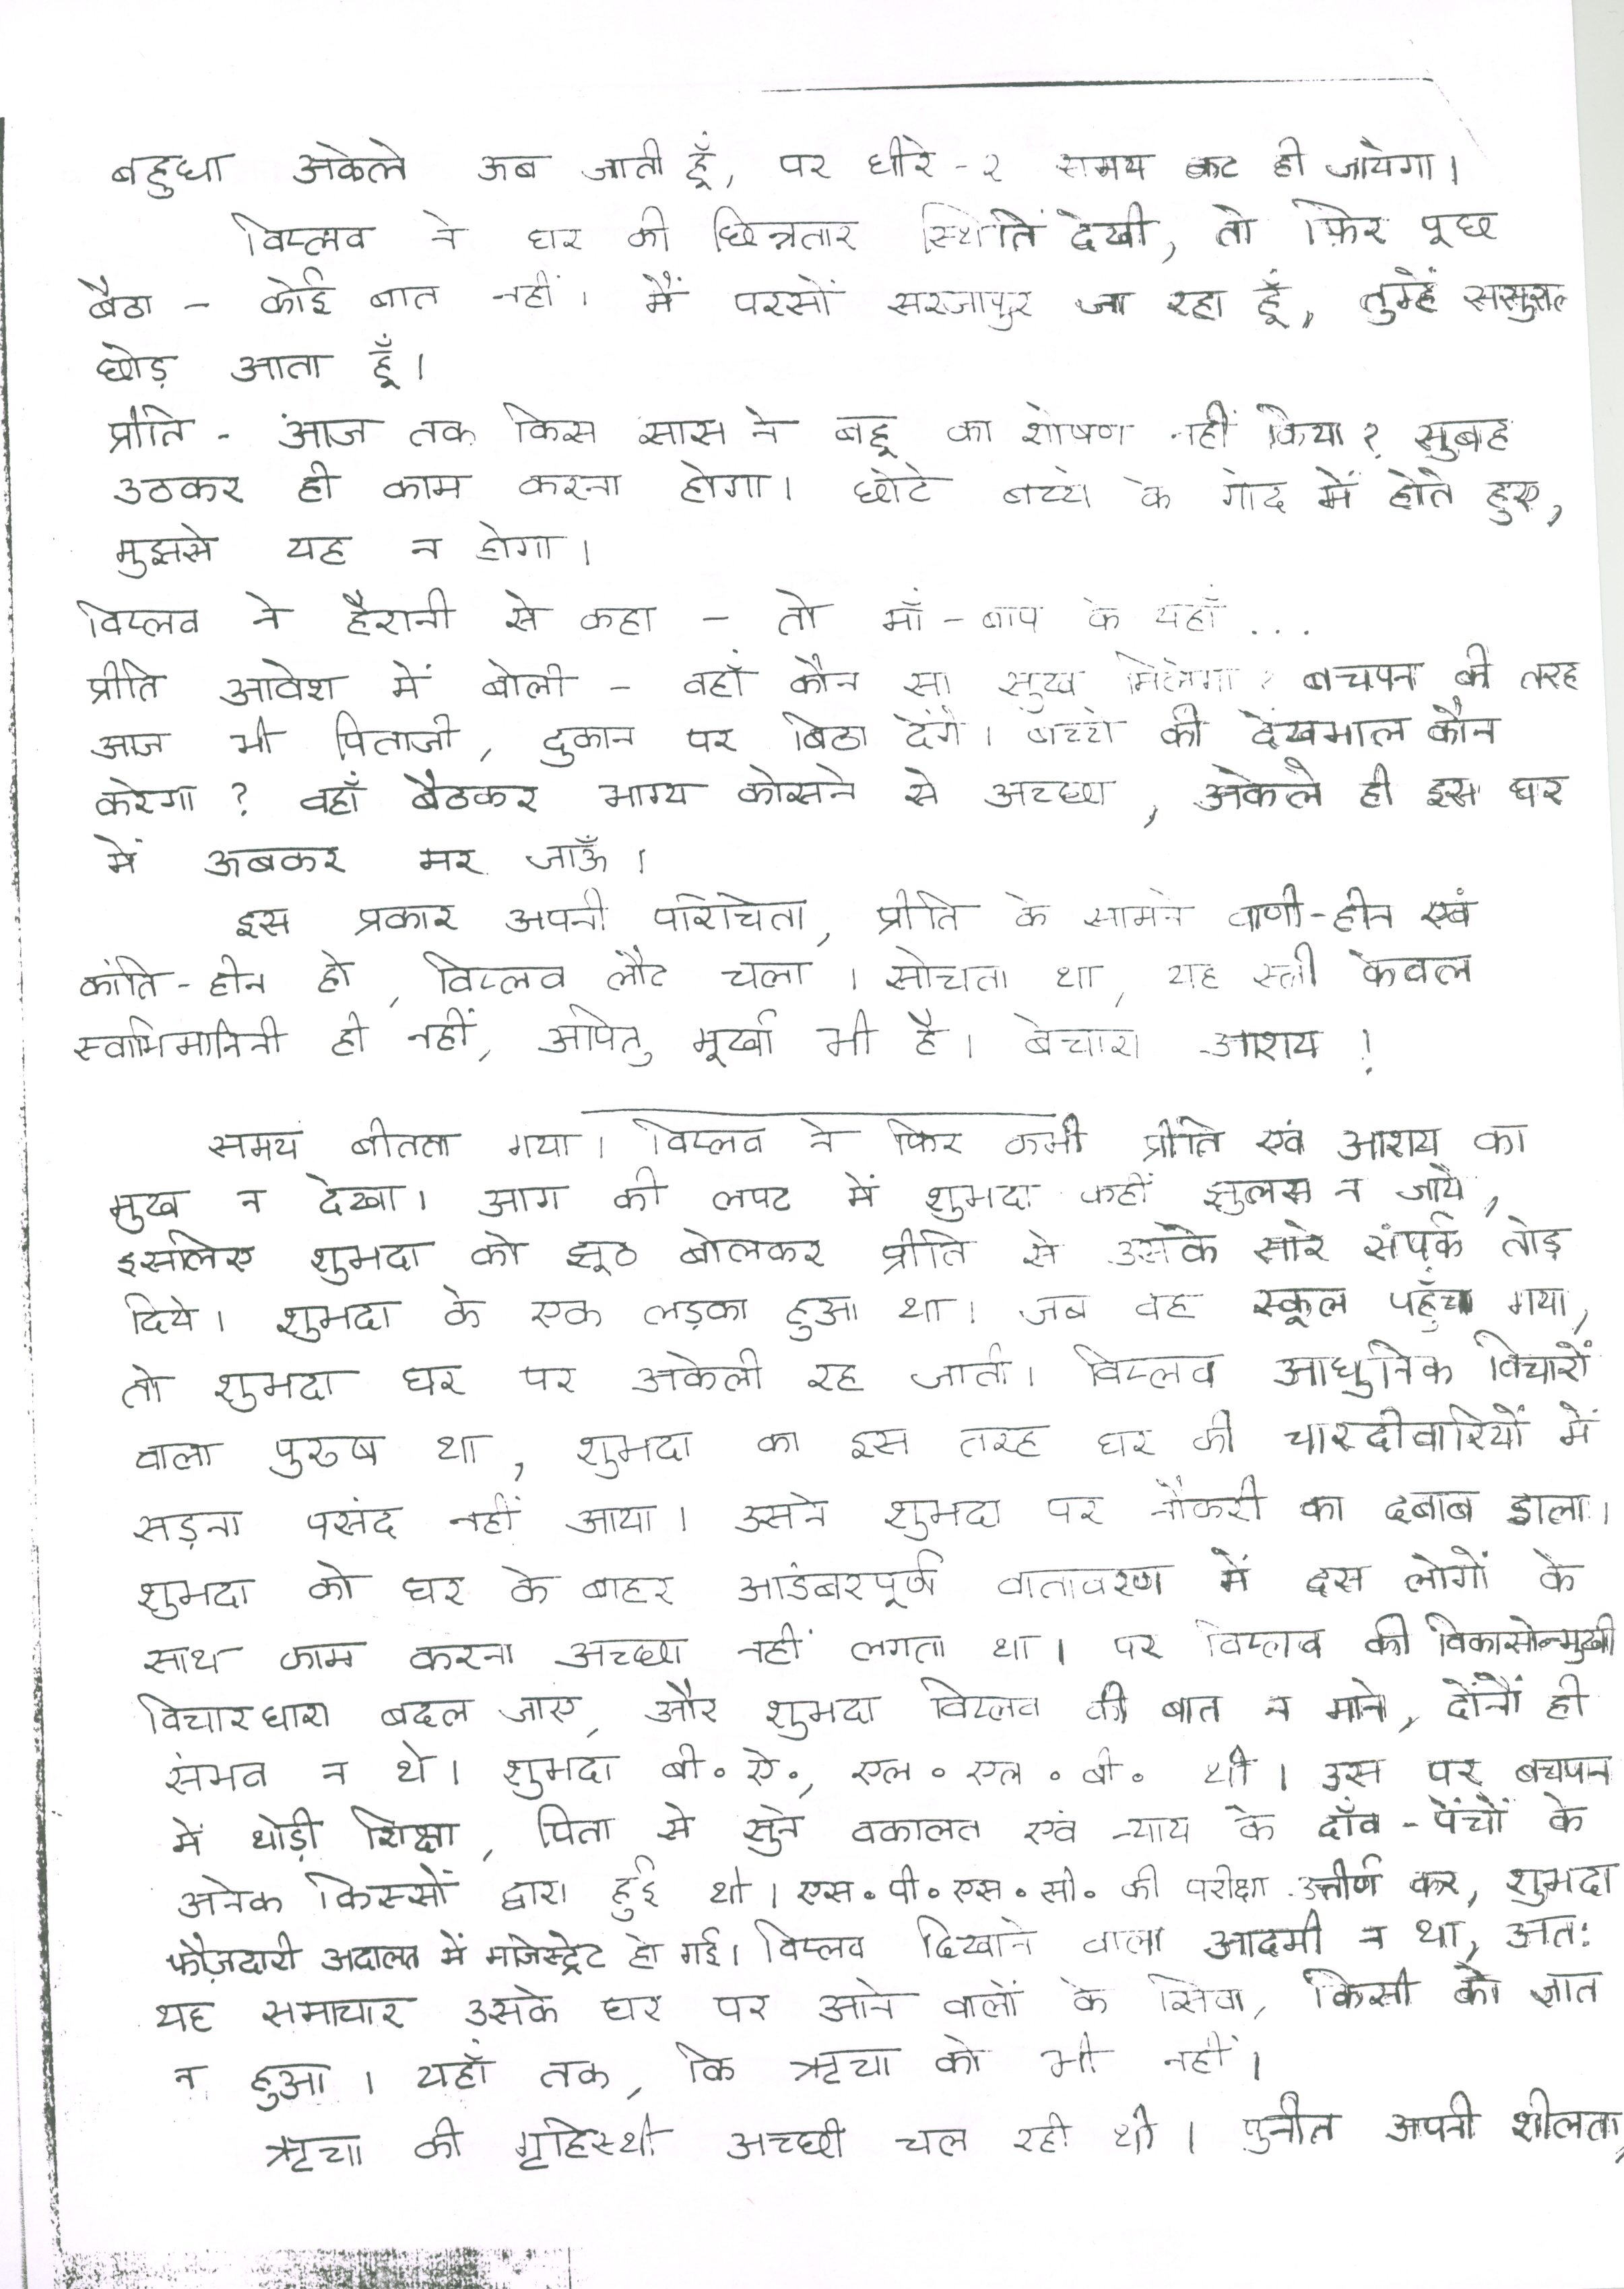 बहुधा अकेले ऊब जाती हूँ, पर धीरे-२ समय कट ही जायेगा।
विप्लव ने घर की छिन्नतार स्थिति देखी, तो फ़िर पूछ
बैठा - कोई बात नहीं। मैं परसों सरजापुर जा रहा हूँ, तुम्हें ससुराल
छोड़ आता हूँ।
प्रीति - आज तक किस सास ने बहू का शोषण नहीं किया? सुबह
उठकर ही काम करना होगा। छोटे बच्चे के गोद में होते हुए,
मुझसे यह न होगा।
विप्लव ने हैरानी से कहा - तो माँ-बाप के यहाँ...
प्रीति आवेश में बोली - वहाँ कौन सा सुख मिलेगा? बचपन की तरह
आज भी पिताजी, दुकान पर बिठा देंगे। बच्चे की देखभाल कौन
करेगा? वहाँ बैठकर भाग्य कोसने से अच्छा, अकेले ही इस घर
में ऊबकर मर जाऊँ।
इस प्रकार अपनी परिचिता, प्रीति के सामने वाणी-हीन एवं
कांति-हीन हो, विप्लव लौट चला। सोचता था, यह स्त्री केवल
स्वाभिमानिनी ही नहीं, अपितु मूर्खा भी है। बेचारा आशय!
समय बीतता गया। विप्लव ने फिर कभी प्रीति एवं आशय का
मुख न देखा। आग की लपट में शुभदा कहीं झुलस न जाये,
इसलिए शुभदा को झूठ बोलकर प्रीति से उसके सारे संपर्क तोड़
दिये। शुभदा के एक लड़का हुआ था। जब वह स्कूल पहुँच गया,
तो शुभदा घर पर अकेली रह जाती। विप्लव आधुनिक विचारों
वाला पुरुष था, शुभदा का इस तरह घर की चारदीवारियों में
सड़ना पसंद नहीं आया। उसने शुभदा पर नौकरी का दबाब डाला।
शुभदा को घर के बाहर आडंबरपूर्ण वातावरण में दस लोगों के
साथ काम करना अच्छा नहीं लगता था। पर विप्लव की विकासोन्मुखी
विचारधारा बदल जाए, और शुभदा विप्लव की बात न माने, दोंनों ही
संभव न थे। शुभदा बी॰ ऐ॰, एल॰ एल॰ बी॰ थी। उस पर बचपन
में थोड़ी शिक्षा, पिता से सुने वकालत एवं न्याय के दाँव-पेंचों के
अनेक किस्सों द्वारा हुई थी। एस॰ पी॰ एस॰ सी॰ की परीक्षा उत्तीर्ण कर, शुभदा
फौज़दारी अदालत में मजिस्ट्रेट हो गई। विप्लव दिखाने वाला आदमी न था, अतः
यह समाचार उसके घर पर आने वालों के सिवा, किसी को ज्ञात
न हुआ। यहाँ तक, कि ऋचा को भी नहीं।
ऋचा की गृहिस्थी अच्छी चल रही थी। पुनीत अपनी शीलता,